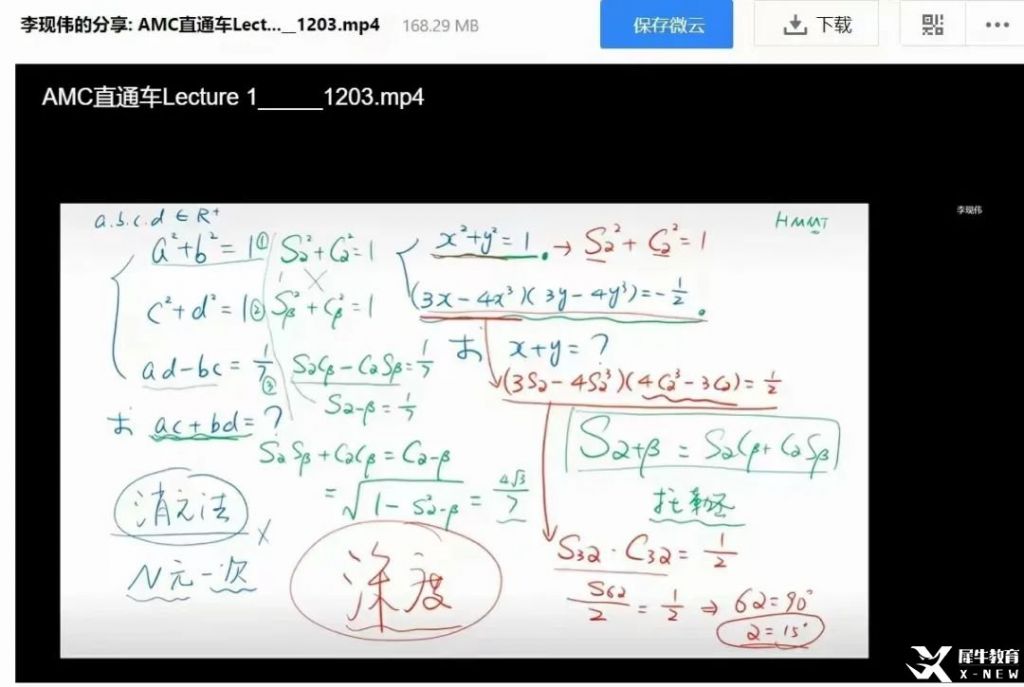 李现伟的分享: AMC直通车Lect...__1203.mp4 168.29 MB 保存微云 下载 •••
AMC直通车Lecture 1_____1203.mp4
李现伟
a.b.c.d ∈ R⁺
a²+b²=1①
c²+d²=1②
ad-bc=1/7③
求 ac+bd=?
消元法 ×
N元一次
S₂²+C₂²=1
×
Sᵦ²+Cᵦ²=1
S₂Cᵦ-C₂Sᵦ=1/7
S₂₋ᵦ=1/7
S₂Sᵦ+C₂Cᵦ=C₂₋ᵦ
=√(1-S²₂₋ᵦ)=4√3/7
深度
HMMT
x²+y²=1. → S₂²+C₂²=1
(3x-4x³)(3y-4y³)=-1/2.
求 x+y=?
(3S₂-4S₂³)(4C₂³-3C₂)=1/2
S₂₊ᵦ=S₂Cᵦ+C₂Sᵦ
托勒密
S₃₂·C₃₂=1/2
S₆₂/2=1/2 ⇒ 62=90°
2=15°
犀牛教育
X-NEW